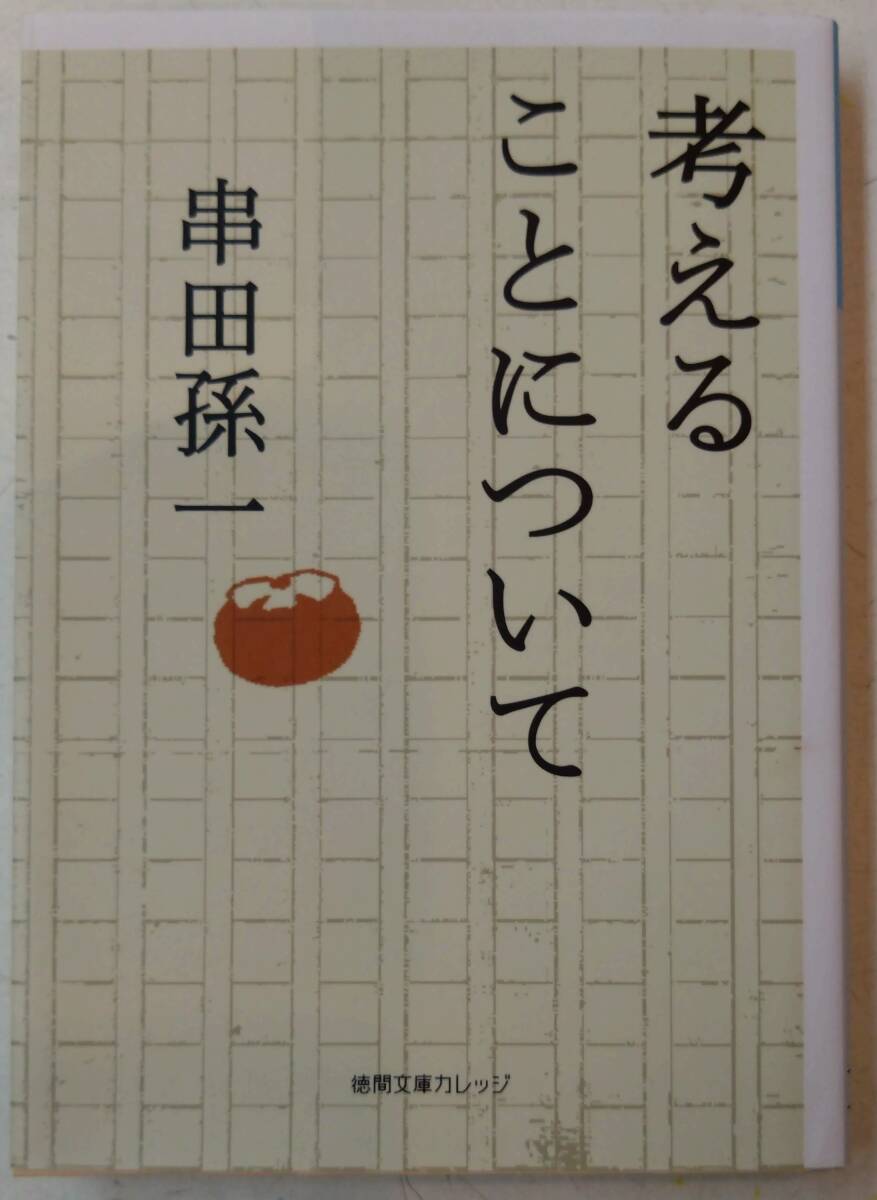 考える
ことについて
串田孫一
徳間文庫カレッジ